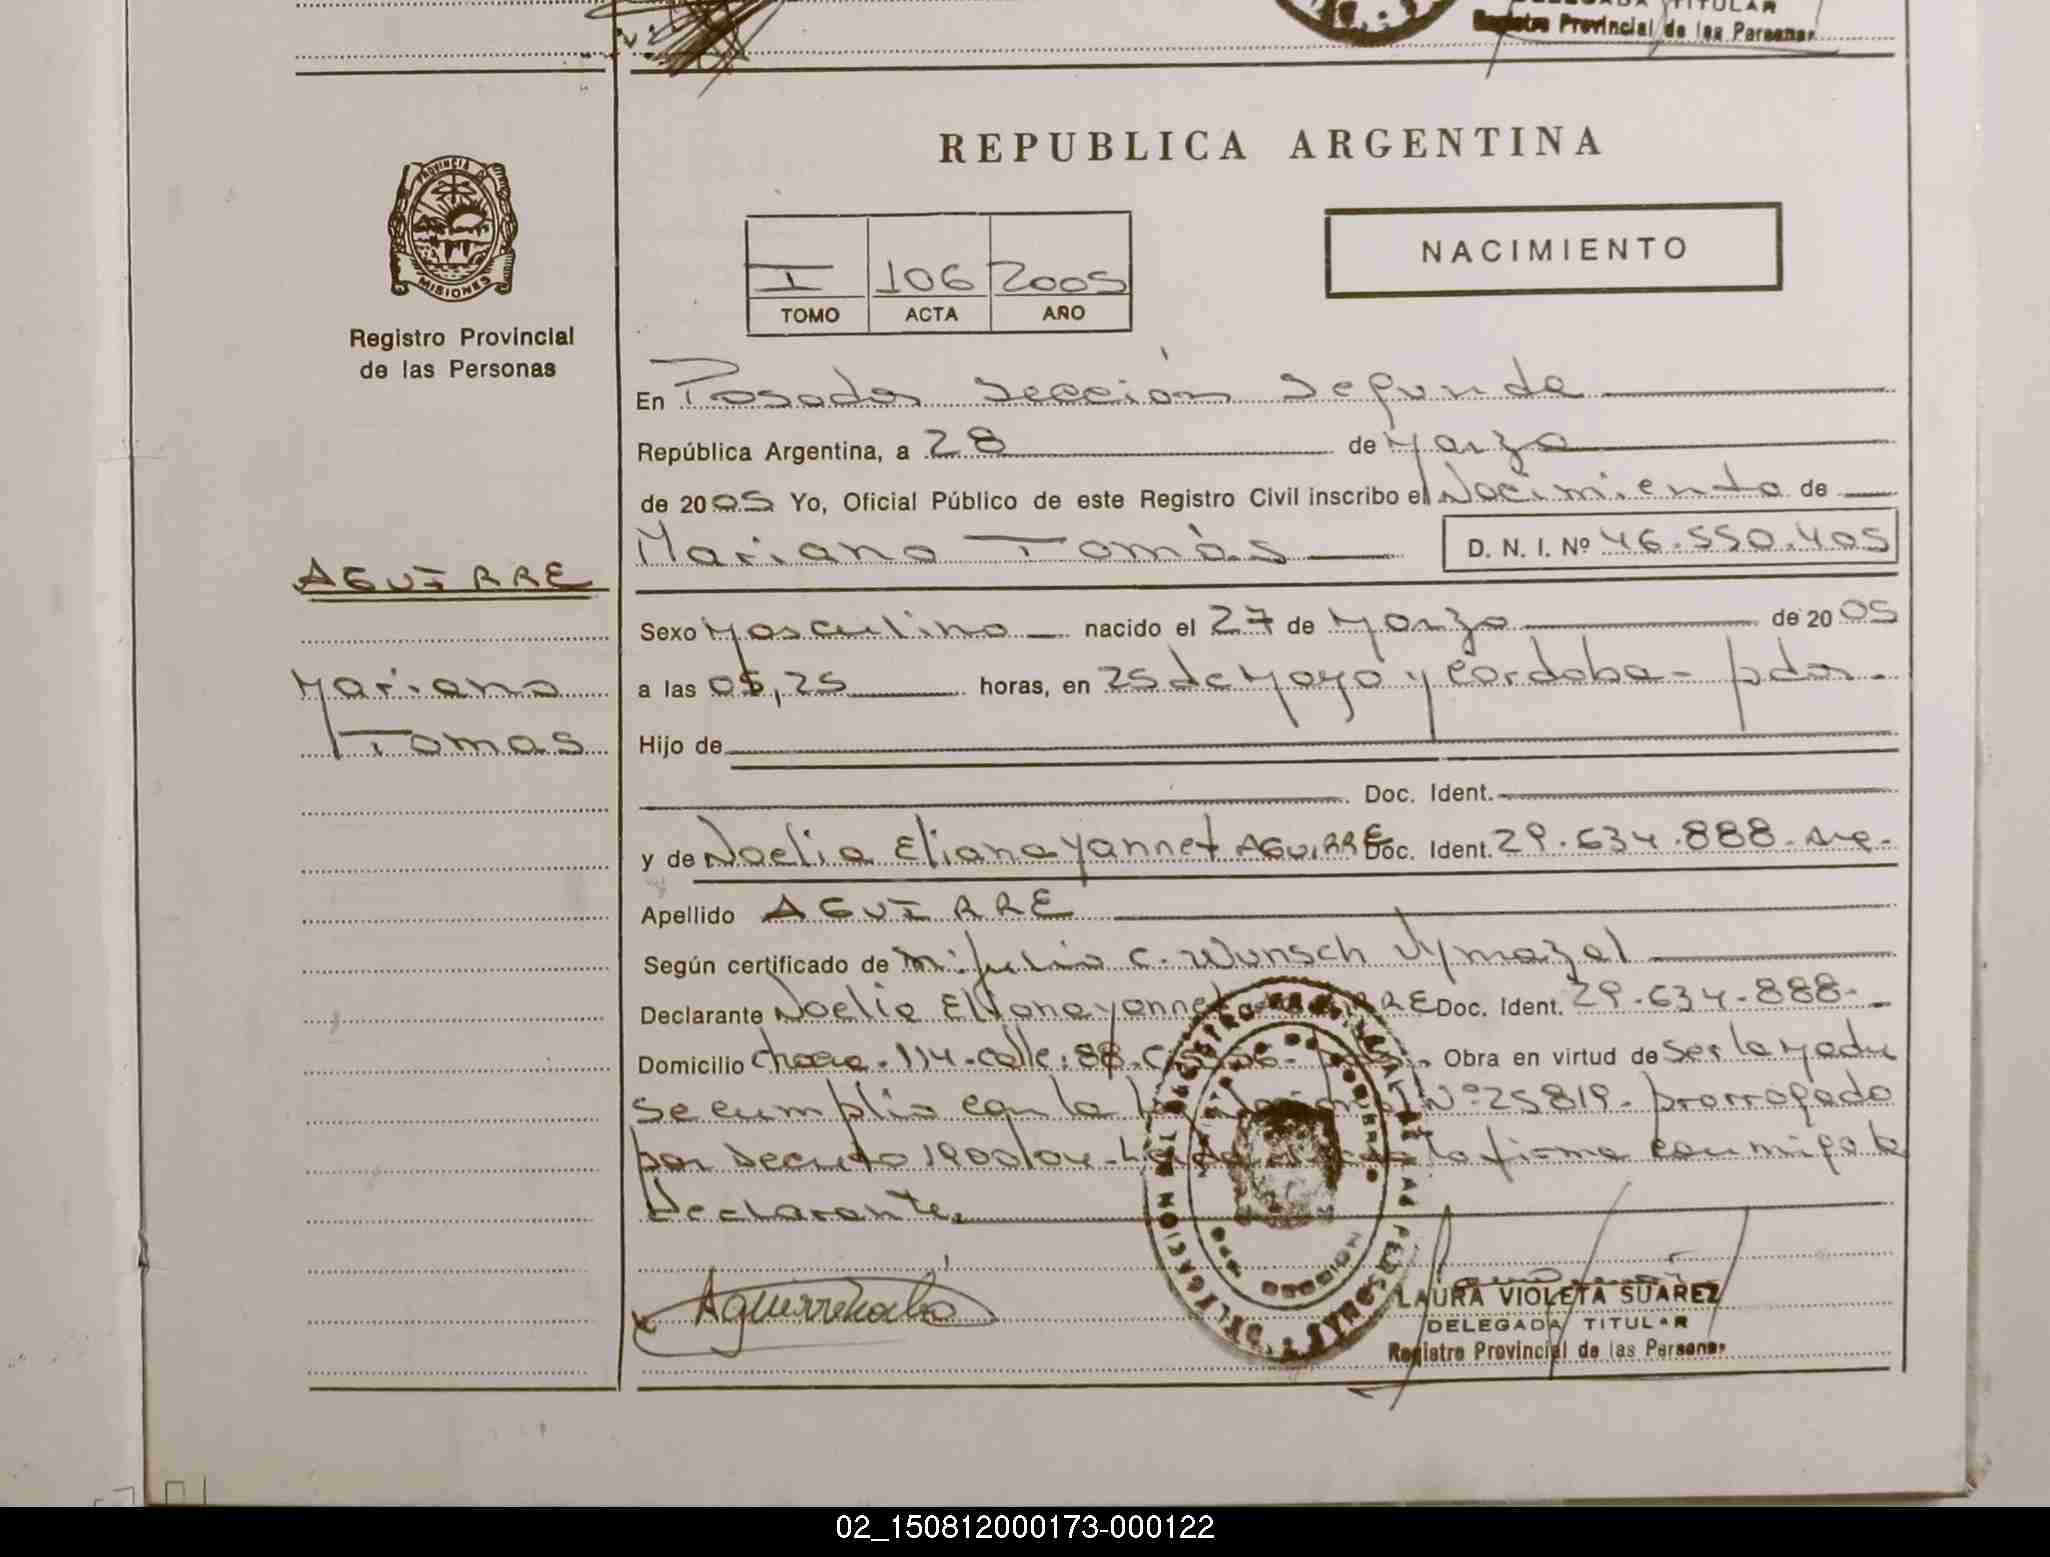 DELEGADA TITULAR
Registro Provincial de las Personas
REPUBLICA ARGENTINA
PROVINCIA DE
MISIONES
NACIMIENTO
I 106 2005
TOMO ACTA AÑO
Registro Provincial
de las Personas
En Posadas Sección Segunda
República Argentina, a 28 de Marzo
de 2005 Yo, Oficial Público de este Registro Civil inscribo el Nacimiento de
Mariano Tomás D. N. I. Nº 46.550.405
AGUIRRE
Mariano
Tomas
Sexo Masculino nacido el 27 de Marzo de 2005
a las 05,25 horas, en 25 de Mayo y Cordoba - pdas.
Hijo de
Doc. Ident.
y de Noelia Eliana Yannet AGUIRRE Doc. Ident. 29.634.888-
Apellido AGUIRRE
Según certificado de M: Julio C. Wunsch Vymazal
Declarante Noelia Eliana Yannet Doc. Ident. 29-634-888-
Domicilio chacra-114-calle:88- Obra en virtud de ser la Madre
se cumplió con la Nº25819-prorrogado
por Decreto 1900/04- la firma conmigo la
Declarante.
LAURA VIOLETA SUAREZ
DELEGADA TITULAR
Registro Provincial de las Personas
02_150812000173-000122